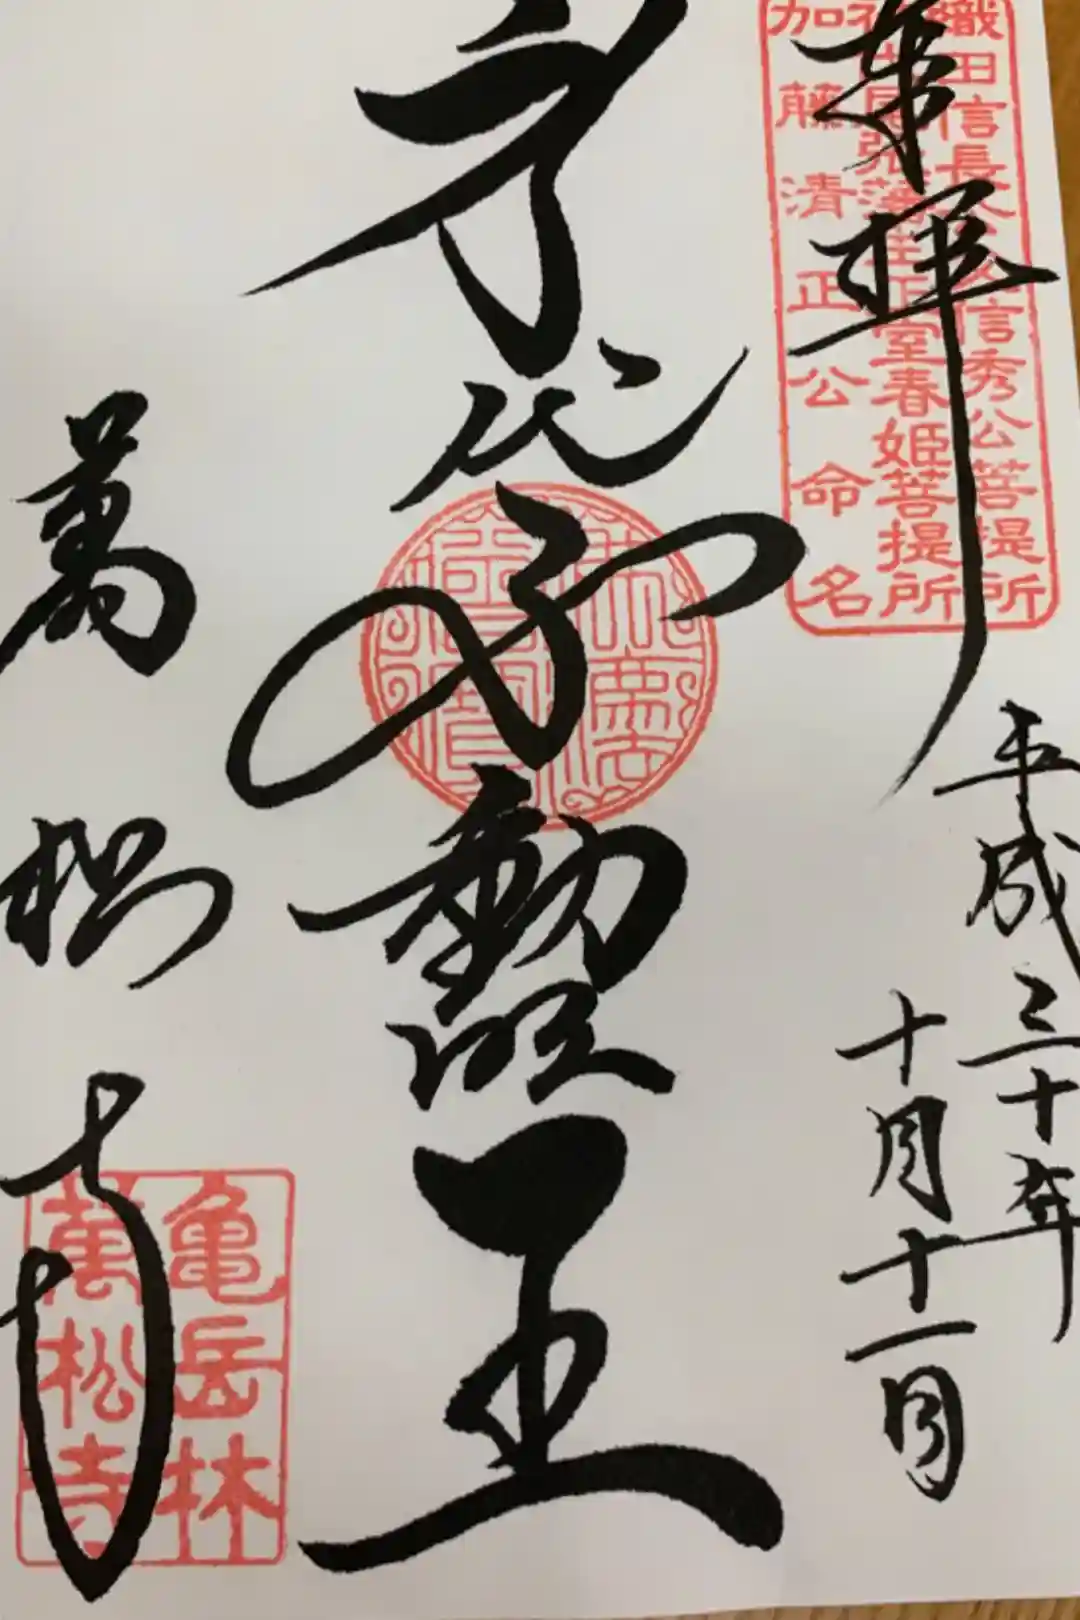 奉拝
織田信長公父信秀公菩提所
尾張藩主正室春姫菩提所
加藤清正公命名
平成三十年
十月十一日
身代不動明王
萬松寺
亀岳林
萬松寺